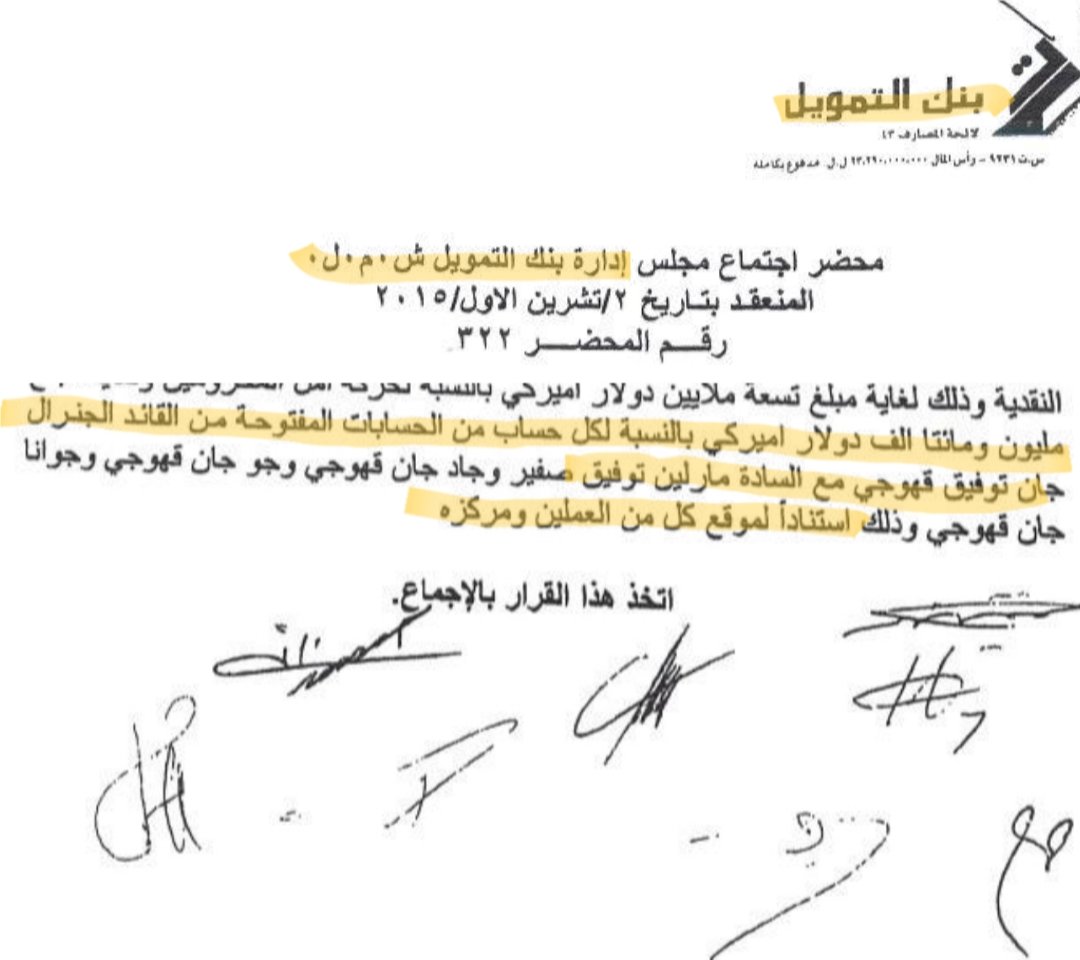 بنك التمويل
لائحة المصارف ٤٣
س.ت ٩٢٣١ – رأس المال ٢٣،٢٩٠،٠٠٠،٠٠٠ ل.ل. مدفوع بكامله
محضر اجتماع مجلس إدارة بنك التمويل ش٠م٠ل٠
المنعقد بتاريخ ٢/تشرين الاول/٢٠١٥
رقم المحضر ٣٢٢
النقدية وذلك لغاية مبلغ تسعة ملايين دولار اميركي بالنسبة لحركة
مليون ومائتا الف دولار اميركي بالنسبة لكل حساب من الحسابات المفتوحة من القائد الجنرال
جان توفيق قهوجي مع السادة مارلين توفيق صفير وجاد جان قهوجي وجو جان قهوجي وجوانا
جان قهوجي وذلك استناداً لموقع كل من العملين ومركزه
اتخذ هذا القرار بالإجماع.